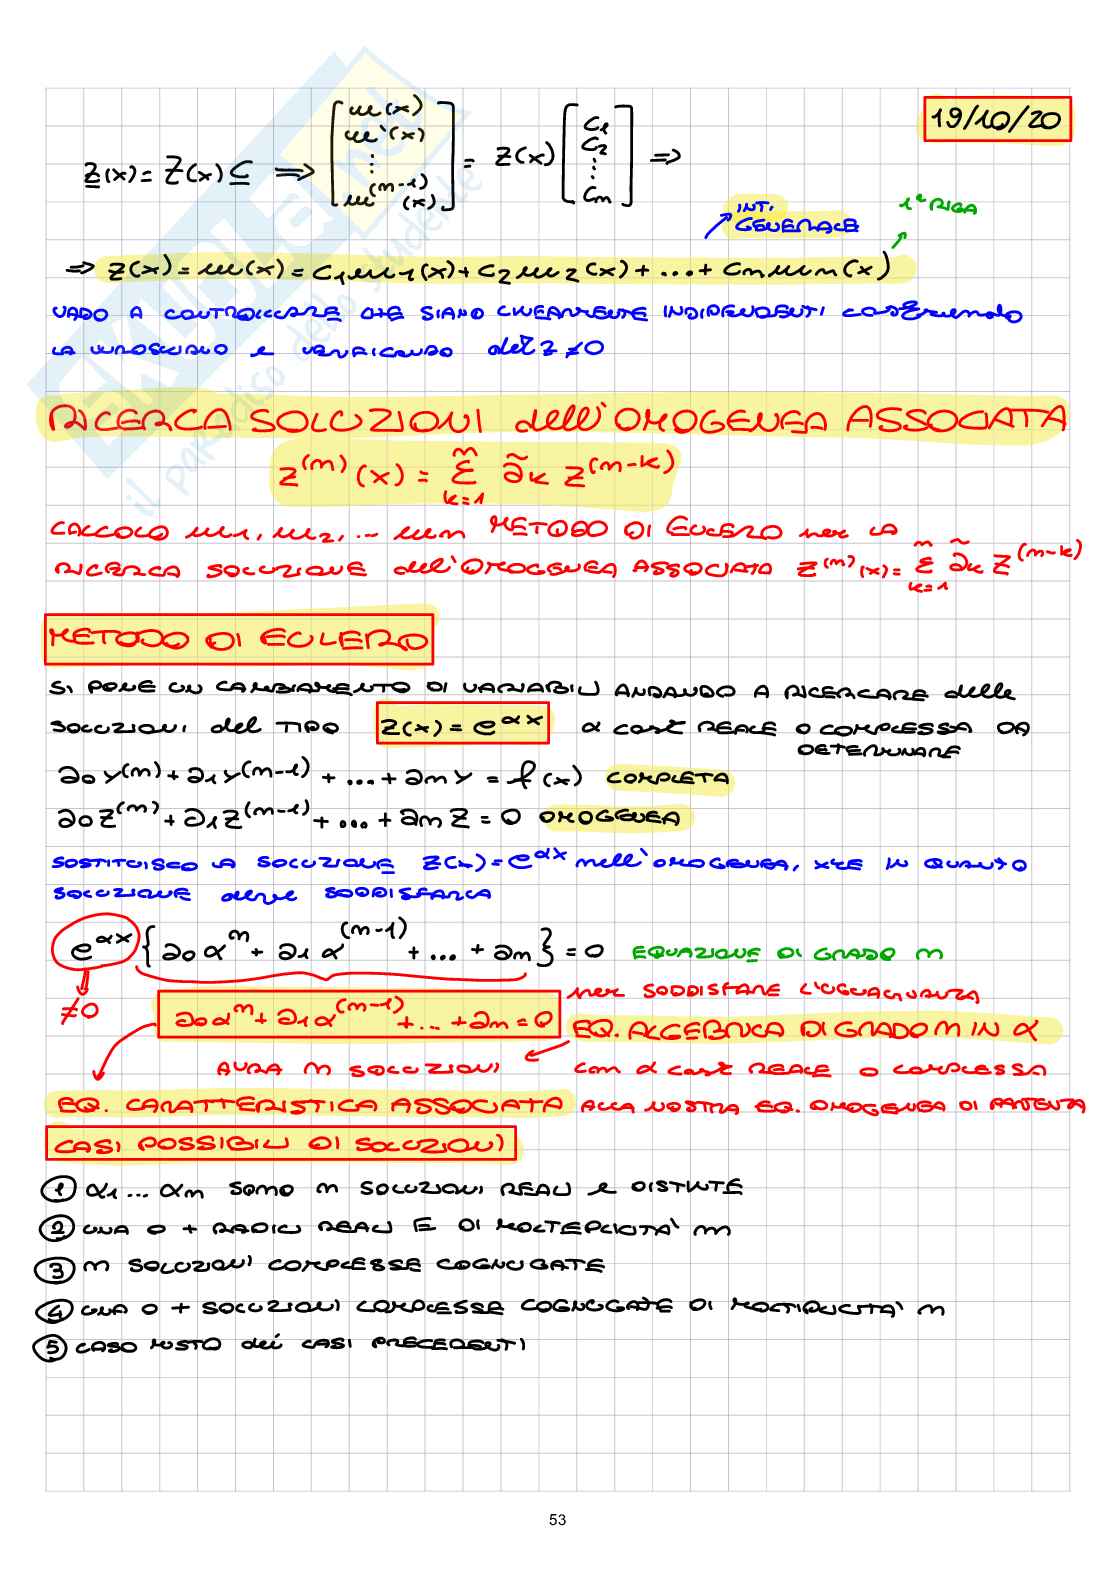 19/10/20
z(x) = Z(x) c ⟹ [u(x) u'(x) ⋮ u^(n-1)(x)] = Z(x) [c1 c2 ⋮ cn] ⟹
INT. GENERALE
1ª RIGA
⟹ z(x) = u(x) = c1 u1(x) + c2 u2(x) + ... + cn un(x)
VADO A CONTROLLARE CHE SIANO LINEARMENTE INDIPENDENTI COSTRUENDO
LA WRONSKIANO E VERIFICANDO det Z ≠ 0
RICERCA SOLUZIONI dell'OMOGENEA ASSOCIATA
z^(n)(x) = Σ_{k=1}^{n} ã_k z^(n-k)
CALCOLO u1, u2, ... un METODO DI EULERO per LA
RICERCA SOLUZIONE dell'OMOGENEA ASSOCIATA z^(n)(x) = Σ_{k=1}^{n} ã_k z^(n-k)
METODO DI EULERO
SI PONE UN CAMBIAMENTO DI VARIABILI ANDANDO A RICERCARE delle
SOLUZIONI del TIPO z(x) = e^αx α cost REALE O COMPLESSA DA
DETERMINARE
a0 y^(n) + a1 y^(n-1) + ... + an y = f(x) COMPLETA
a0 z^(n) + a1 z^(n-1) + ... + an z = 0 OMOGENEA
SOSTITUISCO LA SOLUZIONE z(x) = e^αx nell'OMOGENEA, CHE IN QUANTO
SOLUZIONE deve SODDISFARLA
e^αx {a0 α^n + a1 α^(n-1) + ... + an} = 0 EQUAZIONE DI GRADO n
≠0
per SODDISFARE L'UGUAGLIANZA
a0 α^n + a1 α^(n-1) + ... + an = 0 EQ. ALGEBRICA DI GRADO n IN α
AVRÀ n SOLUZIONI con α cost REALE O COMPLESSA
EQ. CARATTERISTICA ASSOCIATA ALLA NOSTRA EQ. OMOGENEA DI PARTENZA
CASI POSSIBILI DI SOLUZIONI
① α1 ... αn sono n SOLUZIONI REALI e DISTINTE
② UNA O + RADICI REALI E DI MOLTEPLICITA' m
③ n SOLUZIONI COMPLESSE CONIUGATE
④ UNA O + SOLUZIONI COMPLESSE CONIUGATE DI MOLTIPLICITA' m
⑤ CASO MISTO dei CASI PRECEDENTI
53